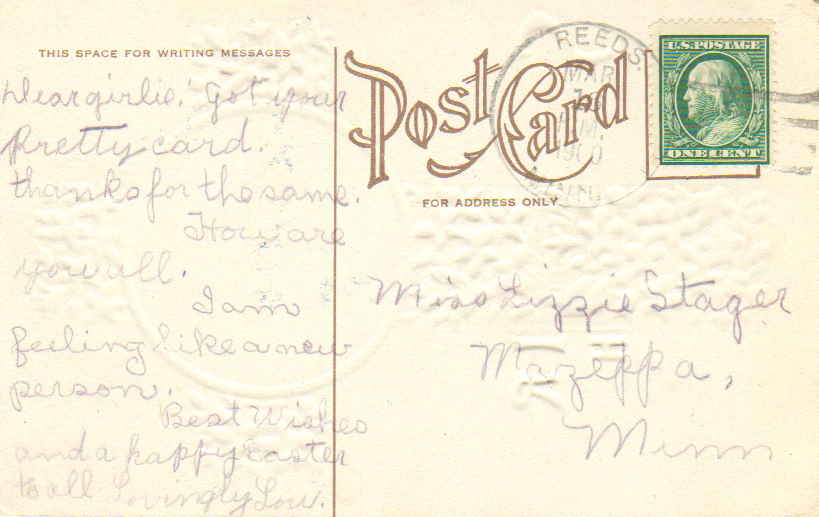 THIS SPACE FOR WRITING MESSAGES
Dear girlie! Got your
Pretty card.
thanks for the same.
How are
you all.
I am
feeling like a new
person.
Best Wishes
and a happy Easter
to all Lovingly Lou.
Post Card
FOR ADDRESS ONLY
REEDS.
MAR
MINN.
U.S. POSTAGE
ONE CENT
Miss Lizzie Stager
Mazeppa,
Minn